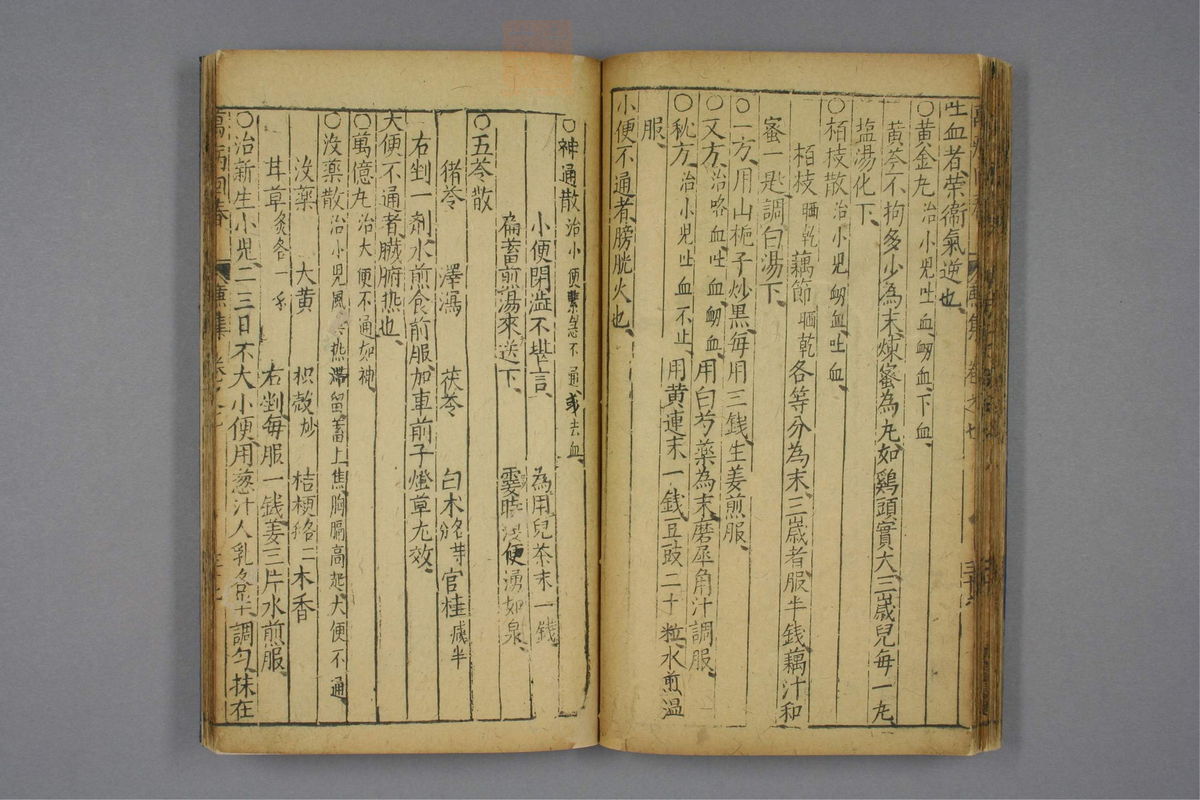 吐血者榮衞氣逆也
○黃金丸 治小児吐血衂血下血
黃芩不拘多少為末煉蜜為丸如鷄頭實大三歲兒每一丸
塩湯化下
○栢枝散 治小児衂血吐血
栢枝 晒乾 藕節 晒乾 各等分為末三歲者服半錢藕汁和
蜜一匙調白湯下
○一方用山梔子炒黑每用三錢生姜煎服
○又方 治咯血吐血衂血 用白芍藥為末磨犀角汁調服
○秘方 治小児吐血不止 用黃連末一錢豆豉二十粒水煎溫
服
小便不通者膀胱火也
○神通散 治小便緊急不通或去血
小便閉澁不堪言 為用兒茶末一錢
萹蓄煎湯來送下 霎時浸便湧如泉
○五苓散
猪苓 澤瀉 茯苓 白木各等分 官桂 減半
右剉一劑水煎食前服加車前子燈草尤效
大便不通者臟腑热也
○萬億丸 治大便不通如神
○没藥散 治小児風热滯留蓄上焦胸膈高起大便不通
没藥 大黃 枳殼炒 桔梗各二 木香
甘草 炙各一 右剉每服一錢姜三片水煎服
○治新生小児二三日不大小便用葱汁人乳各半調勻抹在
萬病回春